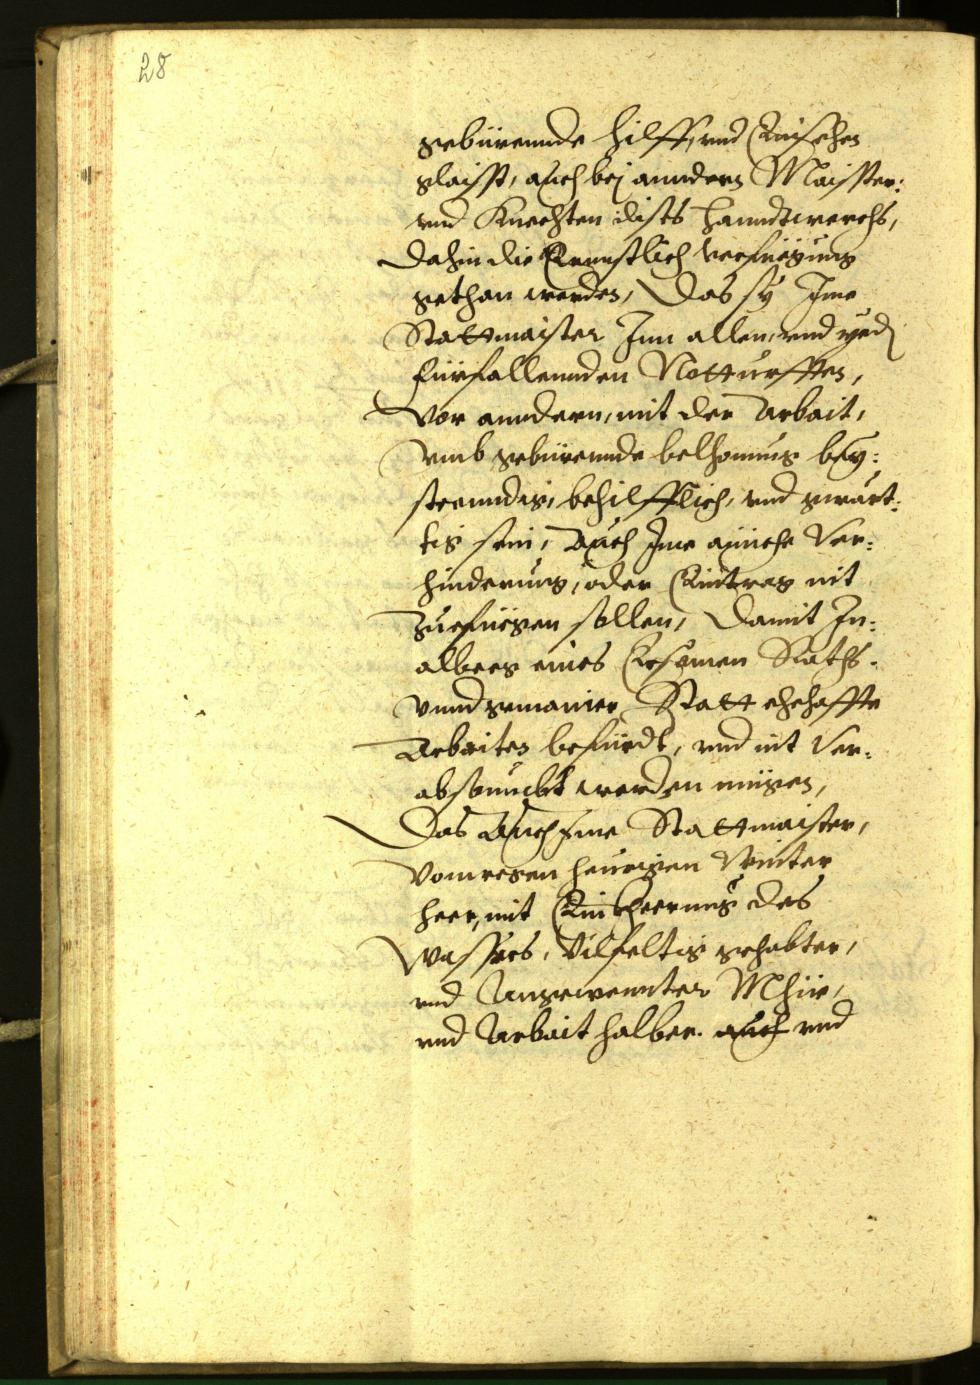 28
gebürennde hilff, vnd
glaisst, auch bej anndern Maister:
vnd Knechten dits Hanndtwerchs,
dahin die Ernnstlich verfüegung
gethan werden, Das sy Ime
Stattmaister Inn allen, vnd yed
fürfallennden Notturfften,
Vor anndern, mit der Arbait,
vmb gebürennde belhonnung bey:
steenndig, behilfflich, vnd gwart:
tig sein, Auch Ime ainiche Ver:
hinderung, oder Eintrag nit
Zuefüegen sollen, Damit In:
albeeg eines Ersamen Raths.
vnnd gemainer Statt ehehaffte
Arbaiten befürdt, vnd nit Ver:
absaumbt werden mügen,
Das Auch Ime Stattmaister,
von wegen heurigen Winter
heer, mit Einkheerung des
Wassers, Vilfeltig gehabter,
vnd Angewennter Mhüe,
vnd Arbait halber. auch vnd